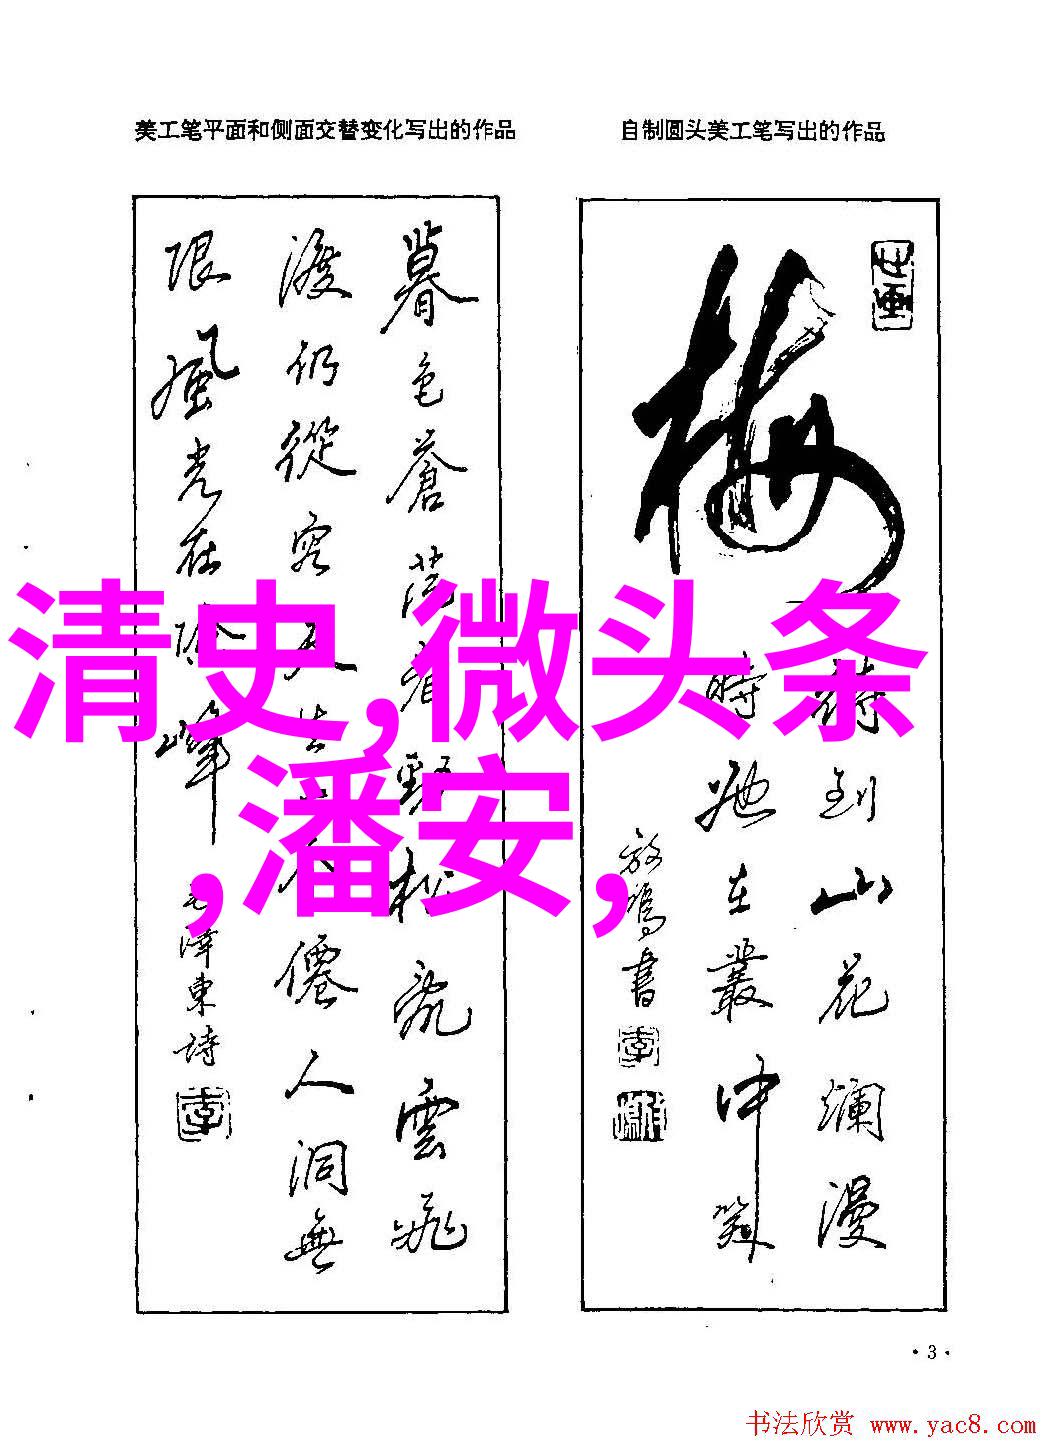 美工笔平面和侧面交替变化写出的作品
自制圆头美工笔写出的作品
暮色苍茫看劲松乱雲飛
渡仍從容天生一个僊人洞無
限風光在险峰
毛澤東詩
梅
待到山花爛漫
時她在叢中笑
書
清史,微头条
,潘安,
·3·
书法欣赏 www.yac8.com